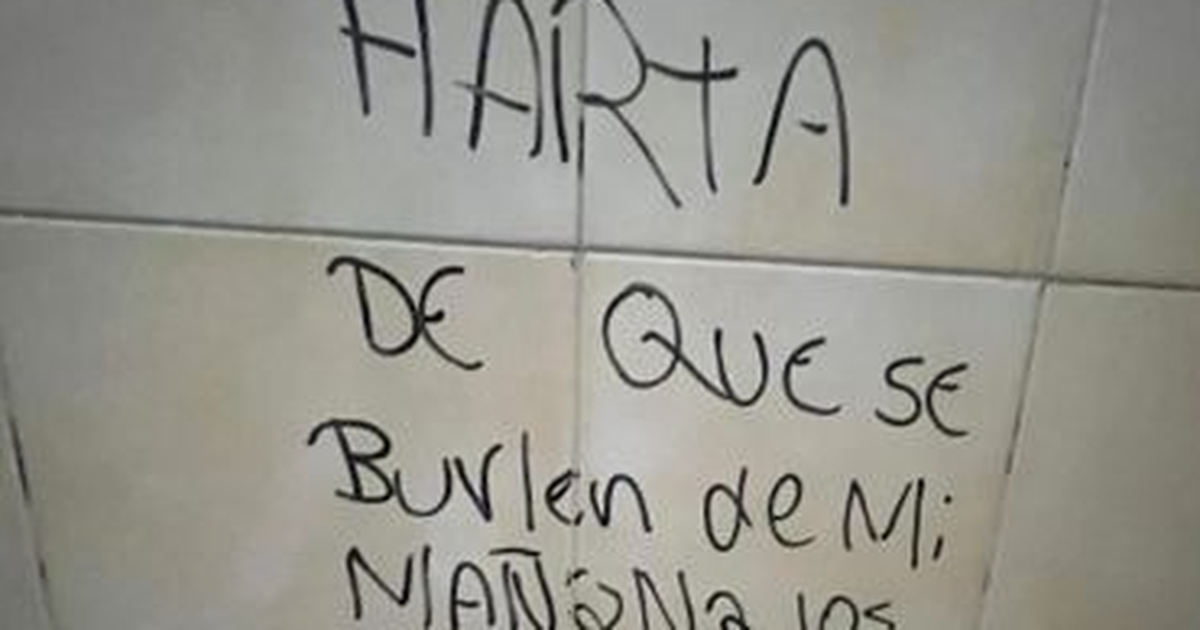 HARTA
DE QUE SE
Burlen de Mi
MAÑaNa los